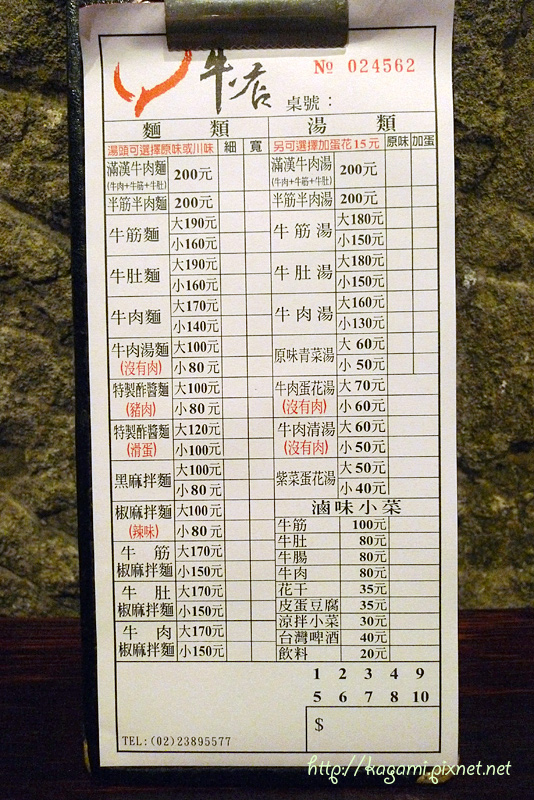 牛店
№ 024562
桌號：
麵類
湯頭可選擇原味或川味 細 寬
滿漢牛肉麵 200元
(牛肉+牛筋+牛肚)
半筋半肉麵 200元
牛筋麵 大190元
小160元
牛肚麵 大190元
小160元
牛肉麵 大170元
小140元
牛肉湯麵 大100元
(沒有肉) 小80元
特製酢醬麵 大100元
(豬肉) 小80元
特製酢醬麵 大120元
(滑蛋) 小100元
黑麻拌麵 大100元
小80元
椒麻拌麵 大100元
(辣味) 小80元
牛筋 大170元
椒麻拌麵 小150元
牛肚 大170元
椒麻拌麵 小150元
牛肉 大170元
椒麻拌麵 小150元
湯類
另可選擇加蛋花15元 原味 加蛋
滿漢牛肉湯 200元
(牛肉+牛筋+牛肚)
半筋半肉湯 200元
牛筋湯 大180元
小150元
牛肚湯 大180元
小150元
牛肉湯 大160元
小130元
原味青菜湯 大60元
小50元
牛肉蛋花湯 大70元
(沒有肉) 小60元
牛肉清湯 大60元
(沒有肉) 小50元
紫菜蛋花湯 大50元
小40元
滷味小菜
牛筋 100元
牛肚 80元
牛腸 80元
牛肉 80元
花干 35元
皮蛋豆腐 35元
涼拌小菜 30元
台灣啤酒 40元
飲料 20元
1 2 3 4 9
5 6 7 8 10
$
TEL:(02)23895577
http://kagami.pixnet.net